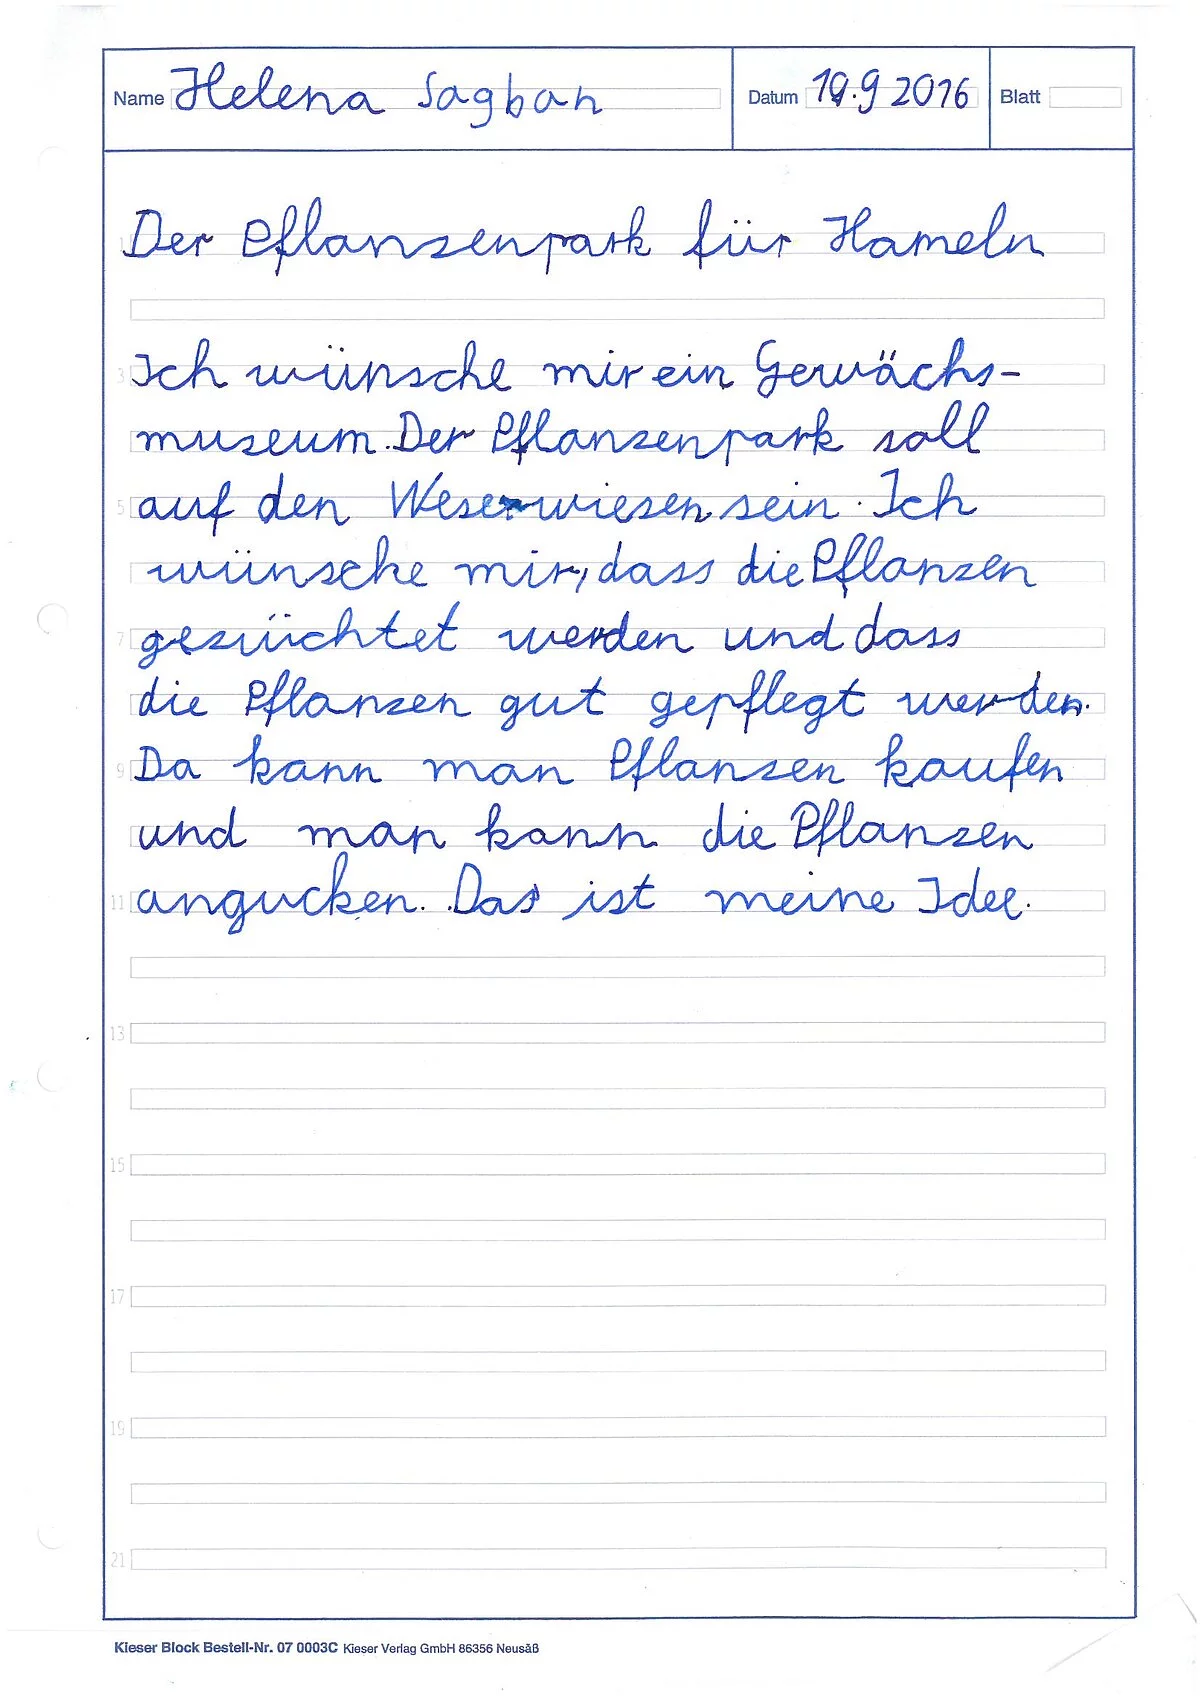 Name Helena Sagban Datum 19.9 2016 Blatt
Der Pflanzenpark für Hameln
3 Ich wünsche mir ein Gewächs-
museum. Der Pflanzenpark soll
5 auf den Weserwiesen sein. Ich
wünsche mir, dass die Pflanzen
7 gezüchtet werden und dass
die Pflanzen gut gepflegt werden.
9 Da kann man Pflanzen kaufen
und man kann die Pflanzen
11 angucken. Das ist meine Idee.
13
15
17
19
21
Kieser Block Bestell-Nr. 07 0003C Kieser Verlag GmbH 86356 Neusäß